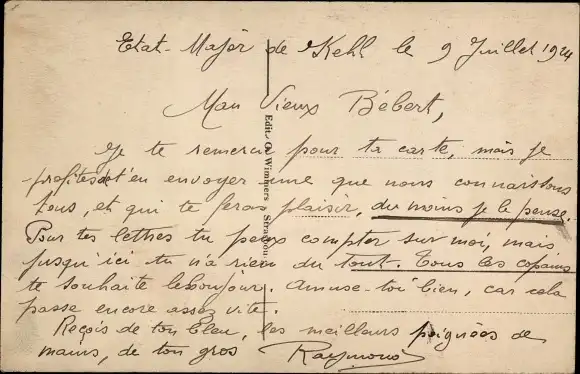 Etat-Major de Kehl le 9 Juillet 1924
Mon Vieux Bébert,
Je te remercie pour ta carte, mais je
profite de t'en envoyer une que nous connaissons
tous, et qui te feras plaisir, du moins je le pense.
Pour tes lettres tu peux compter sur moi, mais
jusqu'ici tu n'a rien du tout. Tous les copains
te souhaite lebonjour. Amuse-toi bien, car cela
passe encore assez vite.
Reçois de ton bleu, les meilleurs poignées de
mains, de ton gros Raymond
Edit. O. Wimmers - Strasbourg